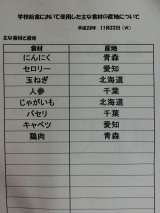 学校給食において使用した主な食材の産地について
平成28年 11月22日（火）
主な食材と産地
食材 産地
にんにく 青森
セロリー 愛知
玉ねぎ 北海道
人参 千葉
じゃがいも 北海道
パセリ 千葉
キャベツ 愛知
鶏肉 青森